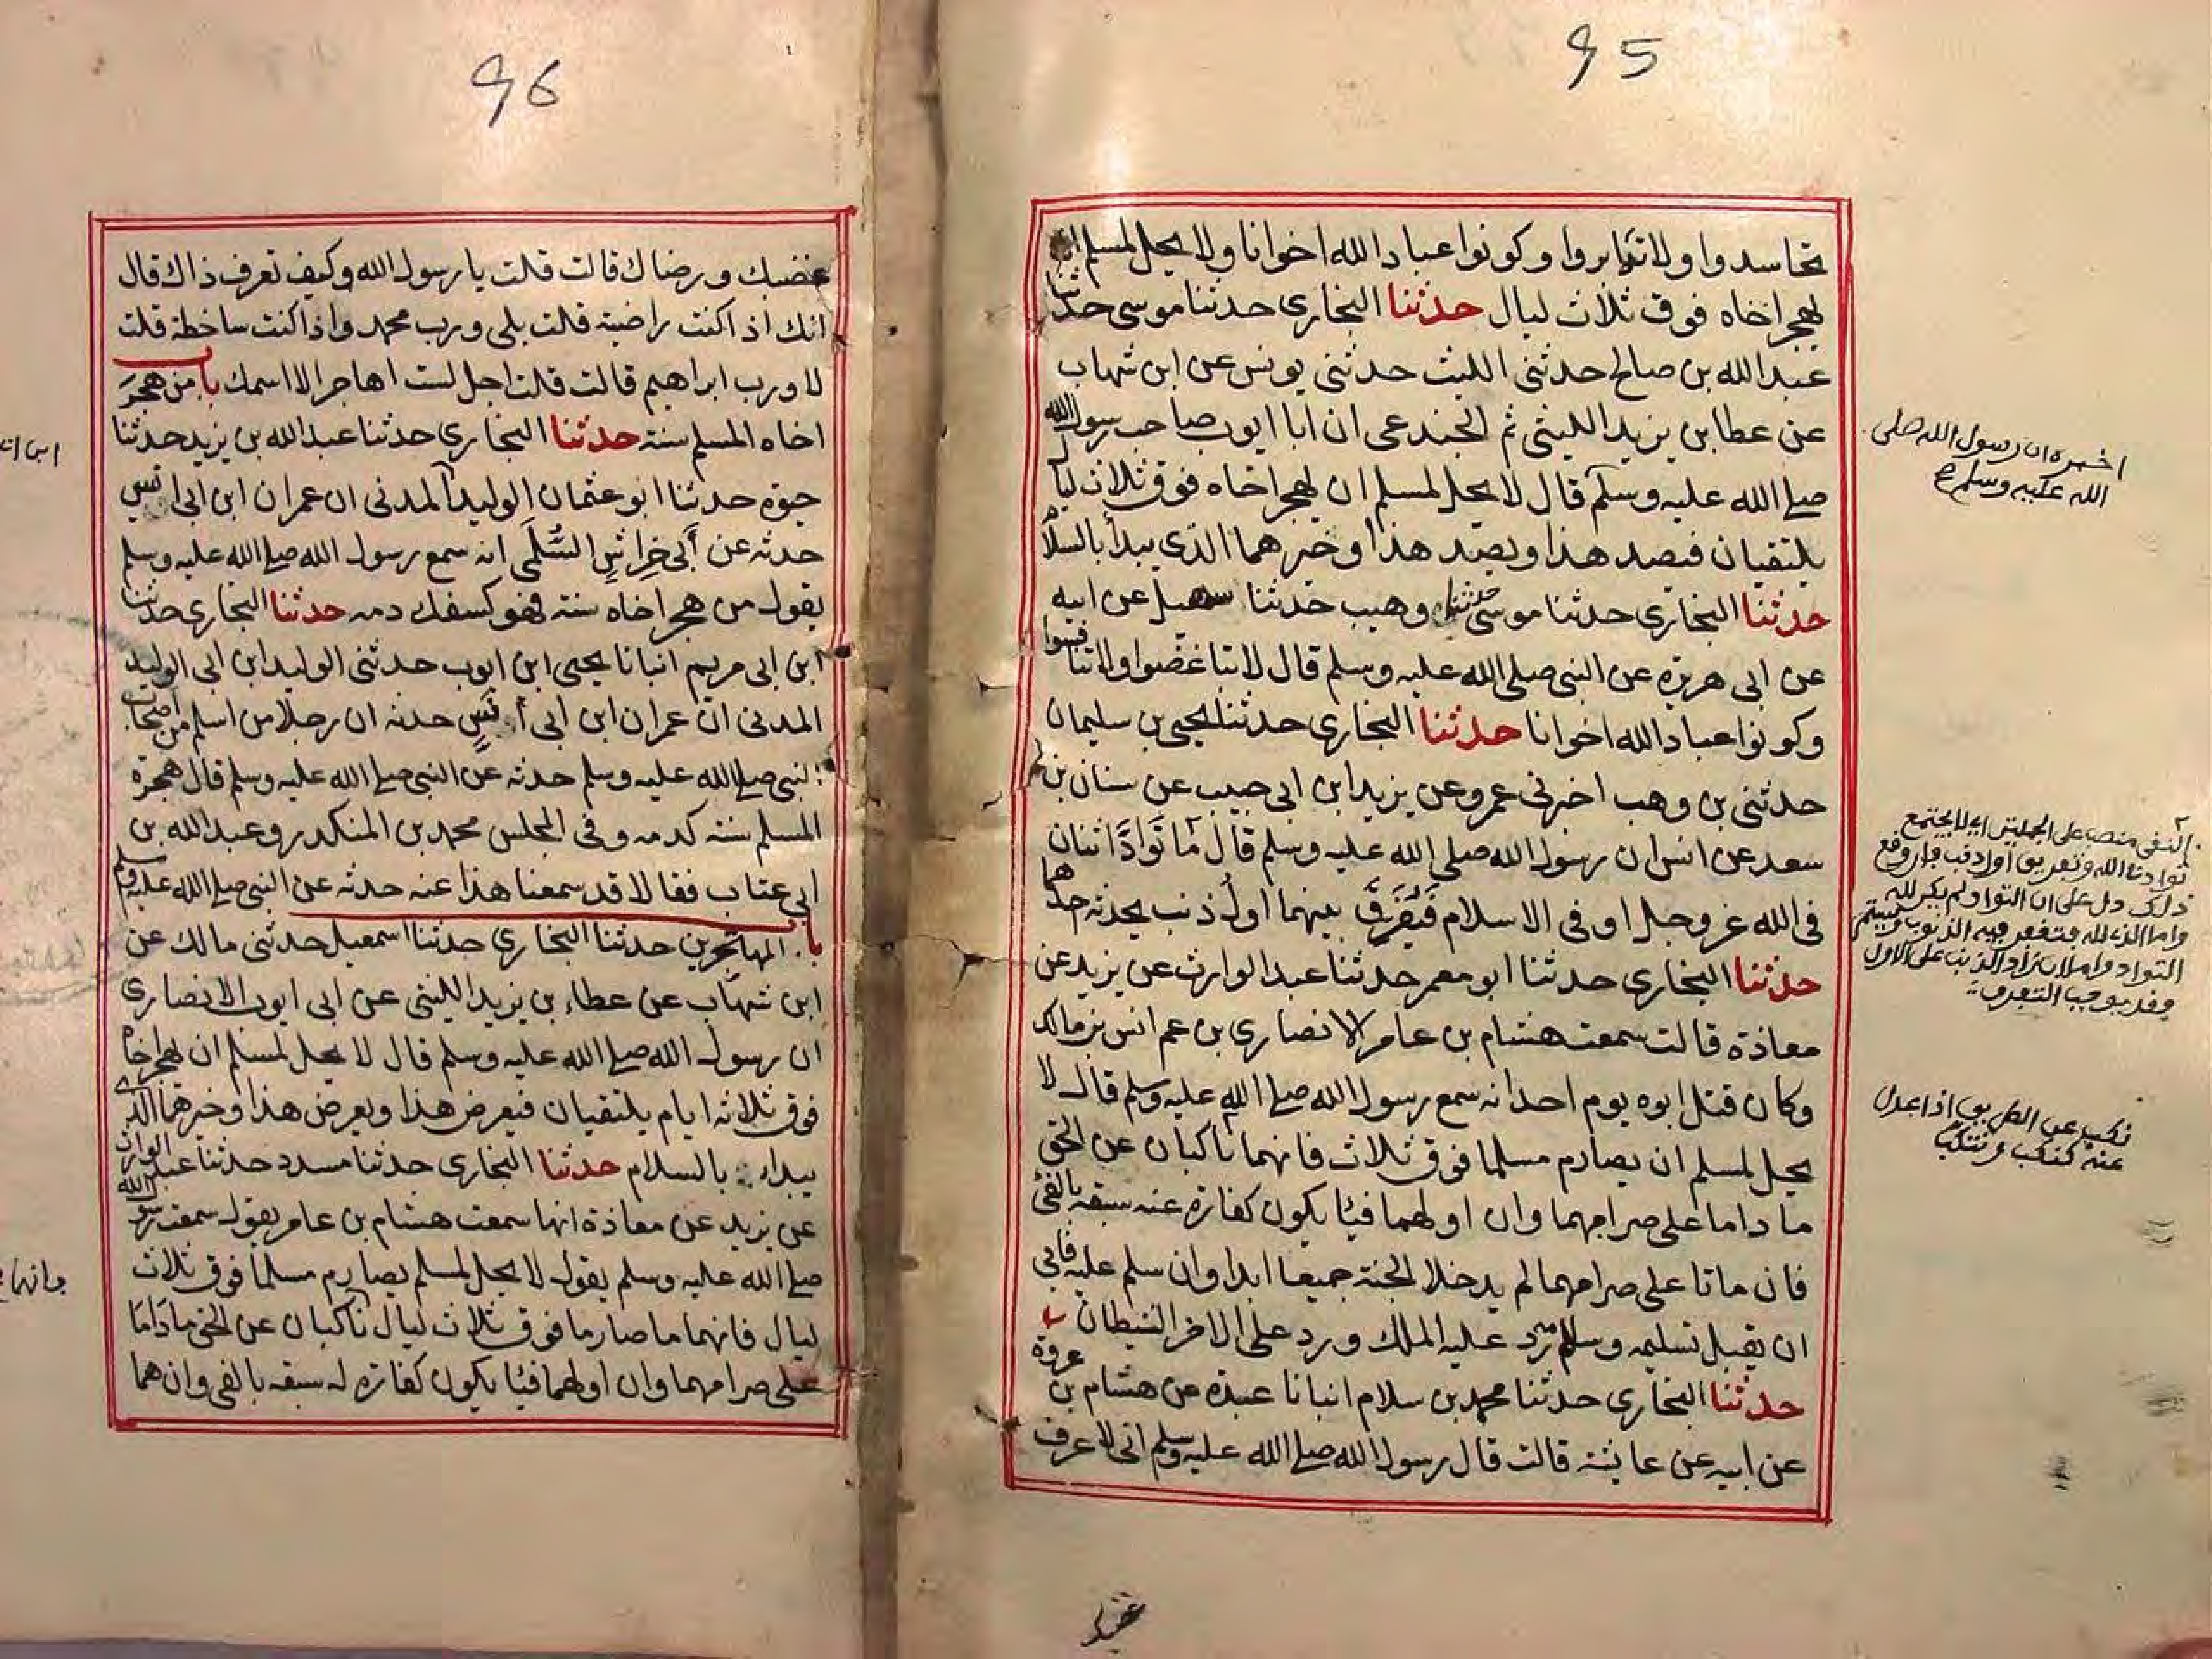 95
تحاسدوا ولا تدابروا وكونوا عباد الله اخوانا ولا يحل لمسلم ان
يهجر اخاه فوق ثلاث ليال حدثنا البخاري حدثنا موسى حدثنا
عبد الله بن صالح حدثني الليث حدثني يونس عن ابن شهاب
عن عطا بن يزيد الليثي ثم الجندعى ان ابا ايوب صاحب رسول الله
صلى الله عليه وسلم قال لا يحل لمسلم ان يهجر اخاه فوق ثلاث ليا
يلتقيان فيصد هذا ويصد هذا وخيرهما الذي يبدأ بالسلام
حدثنا البخاري حدثنا موسى حدثنا وهيب حدثنا سهيل عن ابيه
عن ابي هريرة عن النبي صلى الله عليه وسلم قال لا تباغضوا ولا تنافسوا
وكونوا عباد الله اخوانا حدثنا البخاري حدثنا يحيى بن سليمان
حدثني بن وهب اخبرني عمرو عن يزيد ابن ابي حبيب عن سنان بن
سعد عن انس ان رسول الله صلى الله عليه وسلم قال ما تَوَادَّ اثنان
في الله عز وجل او في الاسلام فَيُفَرَّقُ بينهما اول ذنب يحدثه احدهما
حدثنا البخاري حدثنا ابو معمر حدثنا عبد الوارث عن يزيد عن
معاذة قالت سمعت هشام بن عامر الانصاري بن عم انس بن مالك
وكان قتل ابوه يوم احد انه سمع رسول الله صلى الله عليه وسلم قال لا
يحل لمسلم ان يصارم مسلما فوق ثلاث فانهما ناكبان عن الحق
ما داما على صرامهما وان اولهما فيئا يكون كفارة عنه سبقه بالفئ
فان ماتا على صرامهما لم يدخلا الجنة جميعا ابدا وان سلم عليه فابى
ان يقبل تسليمه وسلامه رد عليه الملك ورد على الاخر الشيطان
حدثنا البخاري حدثنا محمد بن سلام انبانا عبدة عن هشام بن عروة
عن ابيه عن عايشة قالت قال رسول الله صلى الله عليه وسلم اني لاعرف
اخبره ان رسول الله صلى
الله عليه وسلم
نكب عن الطريق اذا عدل
عنه كنكب وتنكب
96
غضبك ورضاك قالت قلت يا رسول الله وكيف تعرف ذاك قال
انك اذا كنت راضية قلت بلى ورب محمد واذا كنت ساخطة قلت
لا ورب ابراهيم قالت قلت اجل لست اهاجر الا اسمك باب من هجر
اخاه المسلم سنة حدثنا البخاري حدثنا عبد الله بن يزيد حدثنا
حيوة حدثنا ابو عثمان الوليد المدني ان عمران ابن ابي انس
حدثه عن أَبي خِراشٍ السُّلَمَي انه سمع رسول الله صلى الله عليه وسلم
يقول من هجر اخاه سنة فهو كسفك دمه حدثنا البخاري حدثنا
ابن ابي مريم انبانا يحيى ابن ايوب حدثني الوليد ابن ابي الوليد
المدني ان عمران ابن ابي أنس حدثه ان رجلا من اسلم من اصحاب
النبي صلى الله عليه وسلم حدثه عن النبي صلى الله عليه وسلم قال هجرة
المسلم سنة كدمه وفي المجلس محمد بن المنكدر وعبد الله بن
ابي عتاب فقالا قد سمعنا هذا عنه حدثه عن النبي صلى الله عليه وسلم
باب المهاجرين حدثنا البخاري حدثنا اسمعيل حدثني مالك عن
ابن شهاب عن عطاء بن يزيد الليثي عن ابي ايوب الانصاري
ان رسول الله صلى الله عليه وسلم قال لا يحل لمسلم ان يهجر اخاه
فوق ثلاثه ايام يلتقيان فيعرض هذا ويعرض هذا وخيرهما الذي
يبداء بالسلام حدثنا البخاري حدثنا مسدد حدثنا عبد الوارث
عن يزيد عن معاذة انها سمعت هشام بن عامر يقول سمعت رسول الله
صلى الله عليه وسلم يقول لا يحل لمسلم يصارم مسلما فوق ثلاث
ليال فانهما ما صارما فوق ثلاث ليال ناكبان عن الحق ما دَامَا
على صرامهما وان اولهما فيئا يكون كفارة له سبقه بالفي وان هما
وانهما